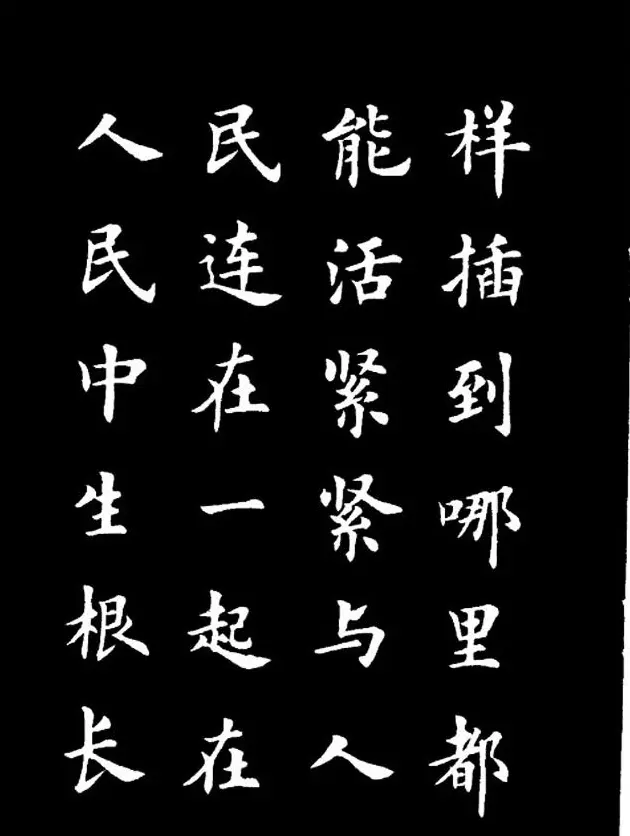 样插到哪里都
能活紧紧与人
民连在一起在
人民中生根长